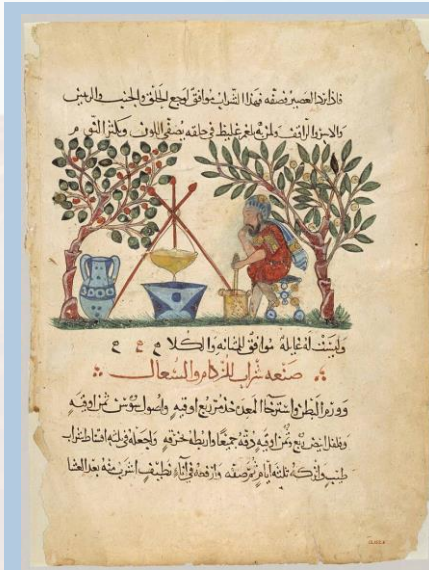 فاذا برد العصير فصفه فهذا الشراب موافق لوجع الحلق والجنب والرئتين
ولمن به بلغم غليظ في حلقه يصفي اللون ويكثر النوم
وليست له غايلة موافق للمثانة والكلا
صنعه شراب للزكام والسعال
وورم البطن واسترخا المعدة خذ مر ربع اوقيه واصول سوس ثمن اوقيه
وفلفل ابيض ربع وثمن اوقيه دقه جميعا واربطه في خرقه واجعله في ثلثه اقساط شراب
طيب واتركه ثلثه ايام ثم صفه وارفعه في اناء نظيف اشرب منه بعد العشا